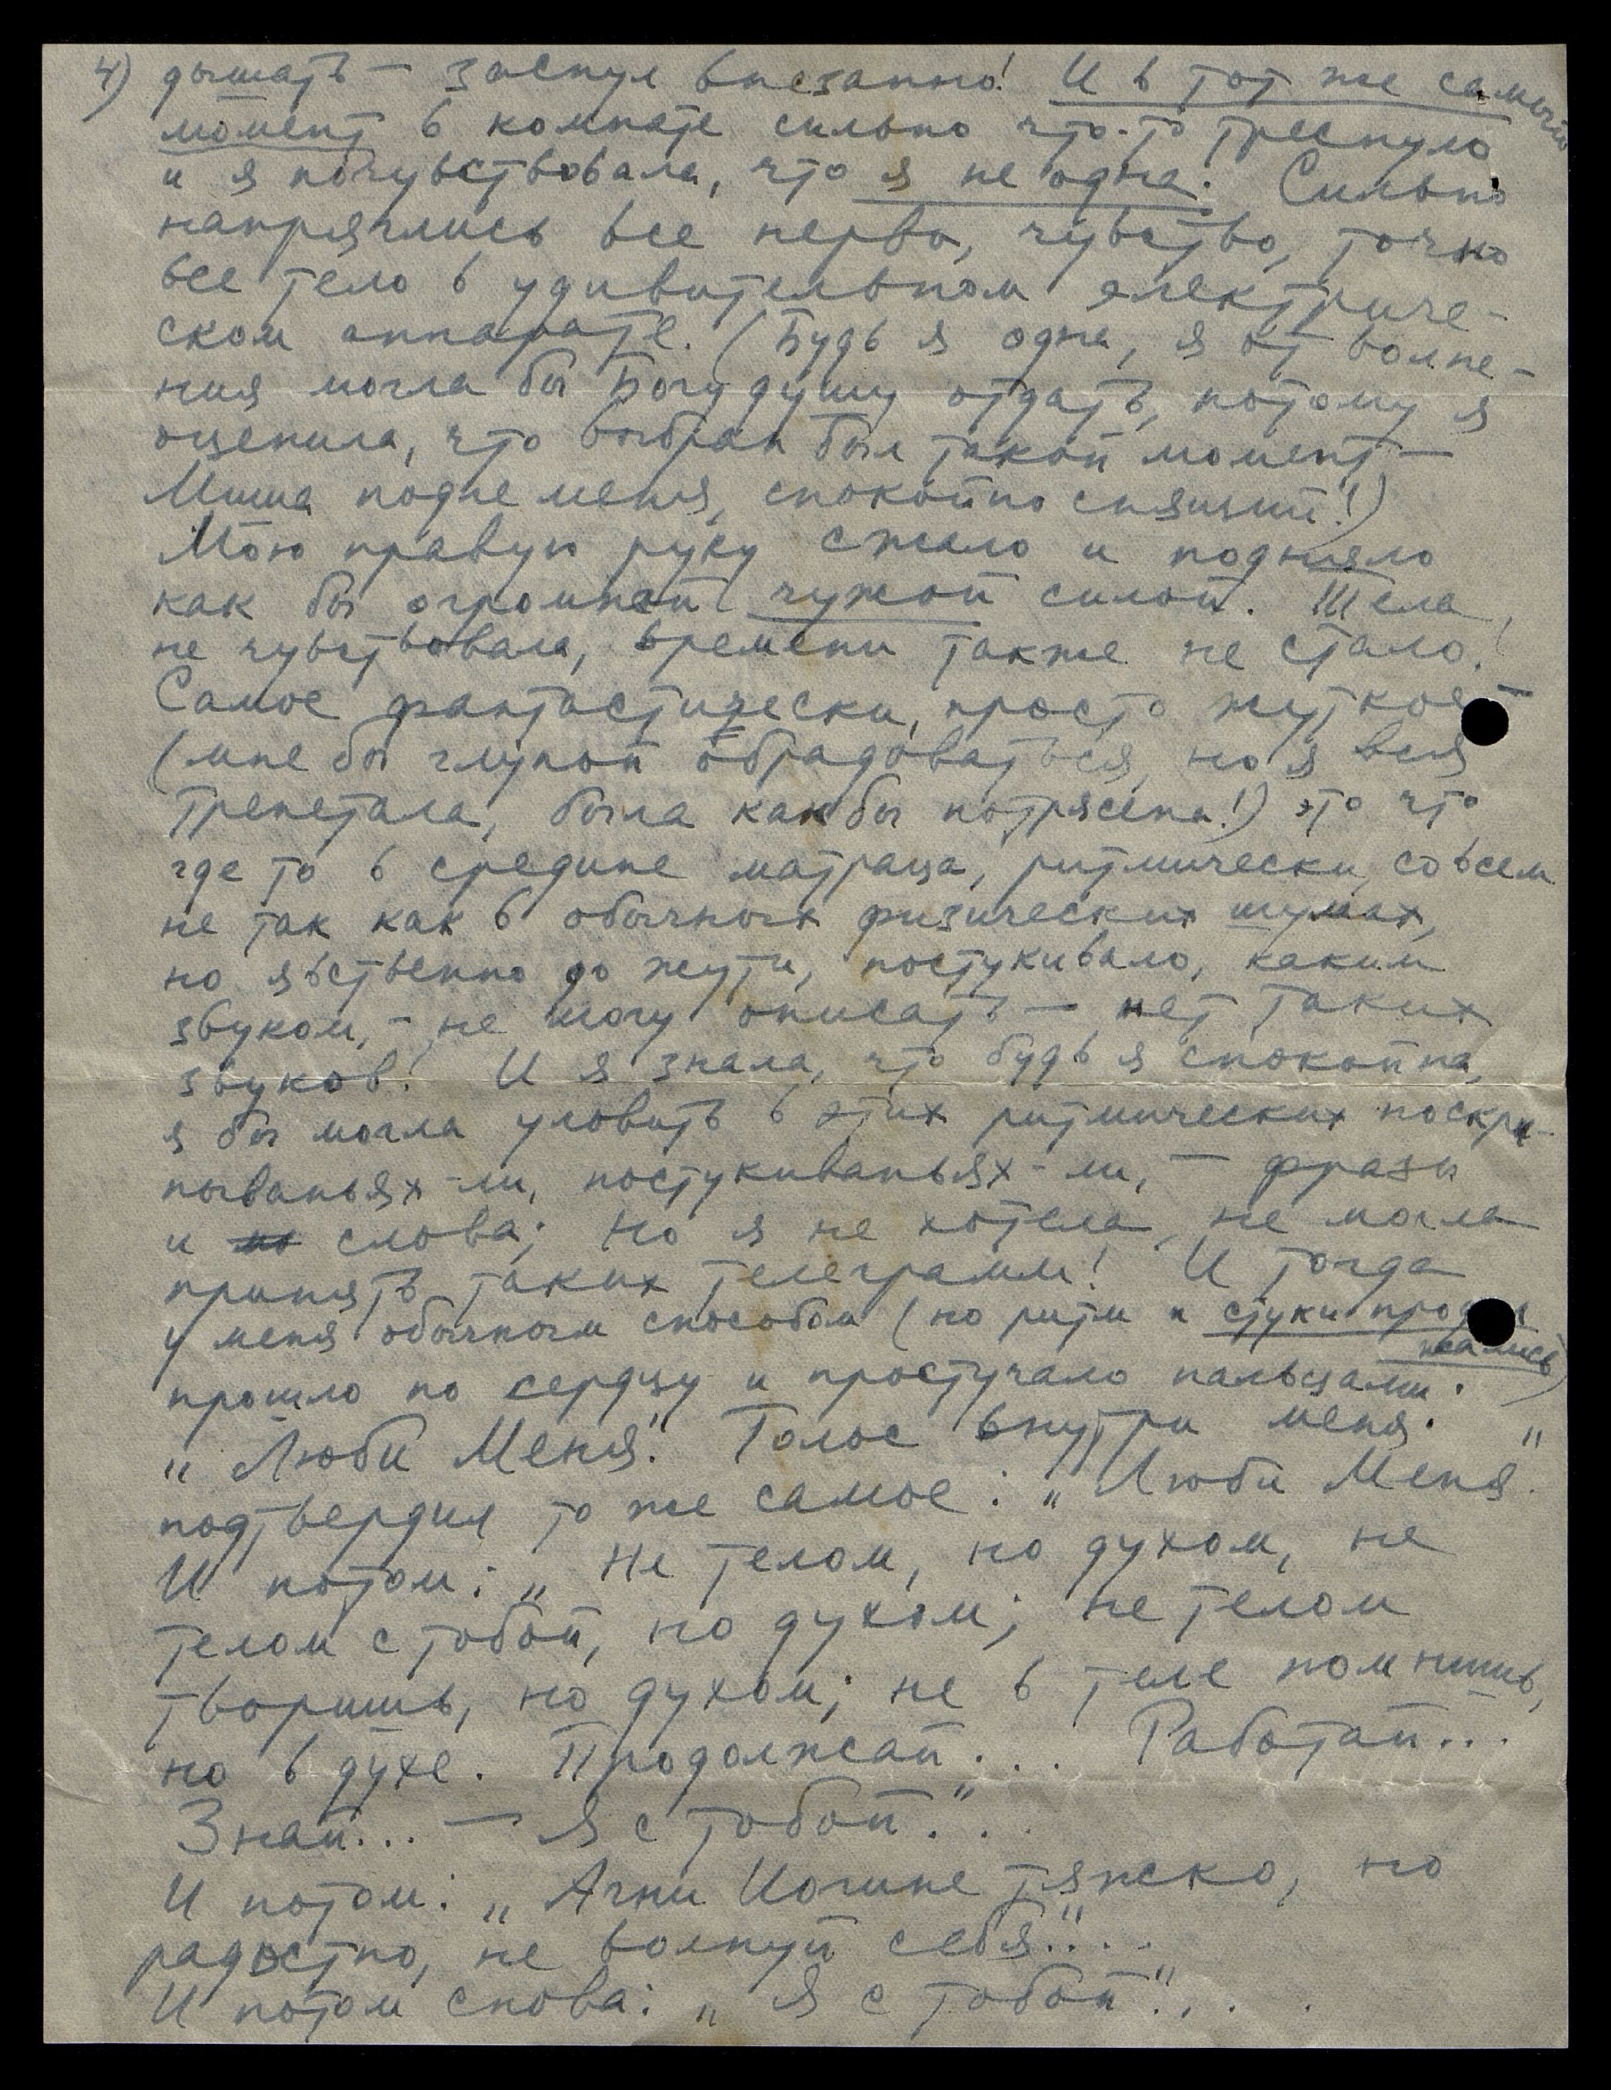 4) дышать — заснул внезапно! И в тот же самый
момент в комнате сильно что-то треснуло
и я почувствовала, что я не одна! Сильно
напряглись все нервы, чувство, точно
все тело в удивительном електриче-
ском аппарате. (Будь я одна, я от волне-
ния могла бы Богу душу отдать, потому я
оценила, что выбран был такой момент —
Миша подле меня, спокойно спящий!)
Мою правую руку сжало и подняло
как бы огромной чужой силой. Тела
не чувствовала, времени также не стало!
Самое фантастически, просто жуткое —
(мне бы глупой обрадоваться, но я вся
трепетала, была как бы потрясена!) это что
где то в средине матраца, ритмически, совсем
не так как в обычных физических шумах,
но явственно до жути, постукивало, каким
звуком, — не могу описать — нет таких
звуков! И я знала, что будь я спокойна,
я бы могла уловить в этих ритмических поскри-
пываньях-ли, постукиваньях-ли, — фразы
и слова; но я не хотела, не могла
принять таких телеграмм! И тогда
у меня обычным способом (но ритм и стуки продол
жались)
прошло по сердцу и простучало пальцами:
„Люби Меня". Голос внутри меня
подтвердил то же самое: „Люби Меня".
И потом: „Не телом, но духом, не
телом с тобой, но духом; не телом
творишь, но духом; не в теле помнишь,
но в духе. Продолжай... Работай...
Знай... — Я с тобой"...
И потом: „Агни Йогине тяжко, но
радостно, не волнуй себя"....
И потом снова: „Я с тобой"....